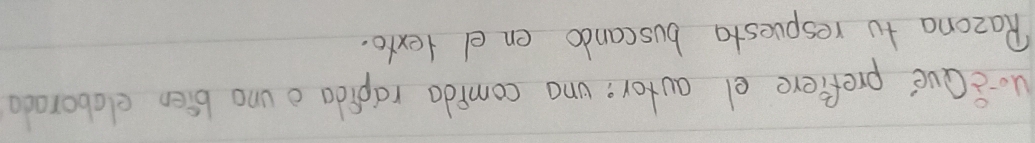 4.-¿Qué prefiere el autor: una comida rápida o una bien elaborada
Razona tu respuesta buscando en el texto.